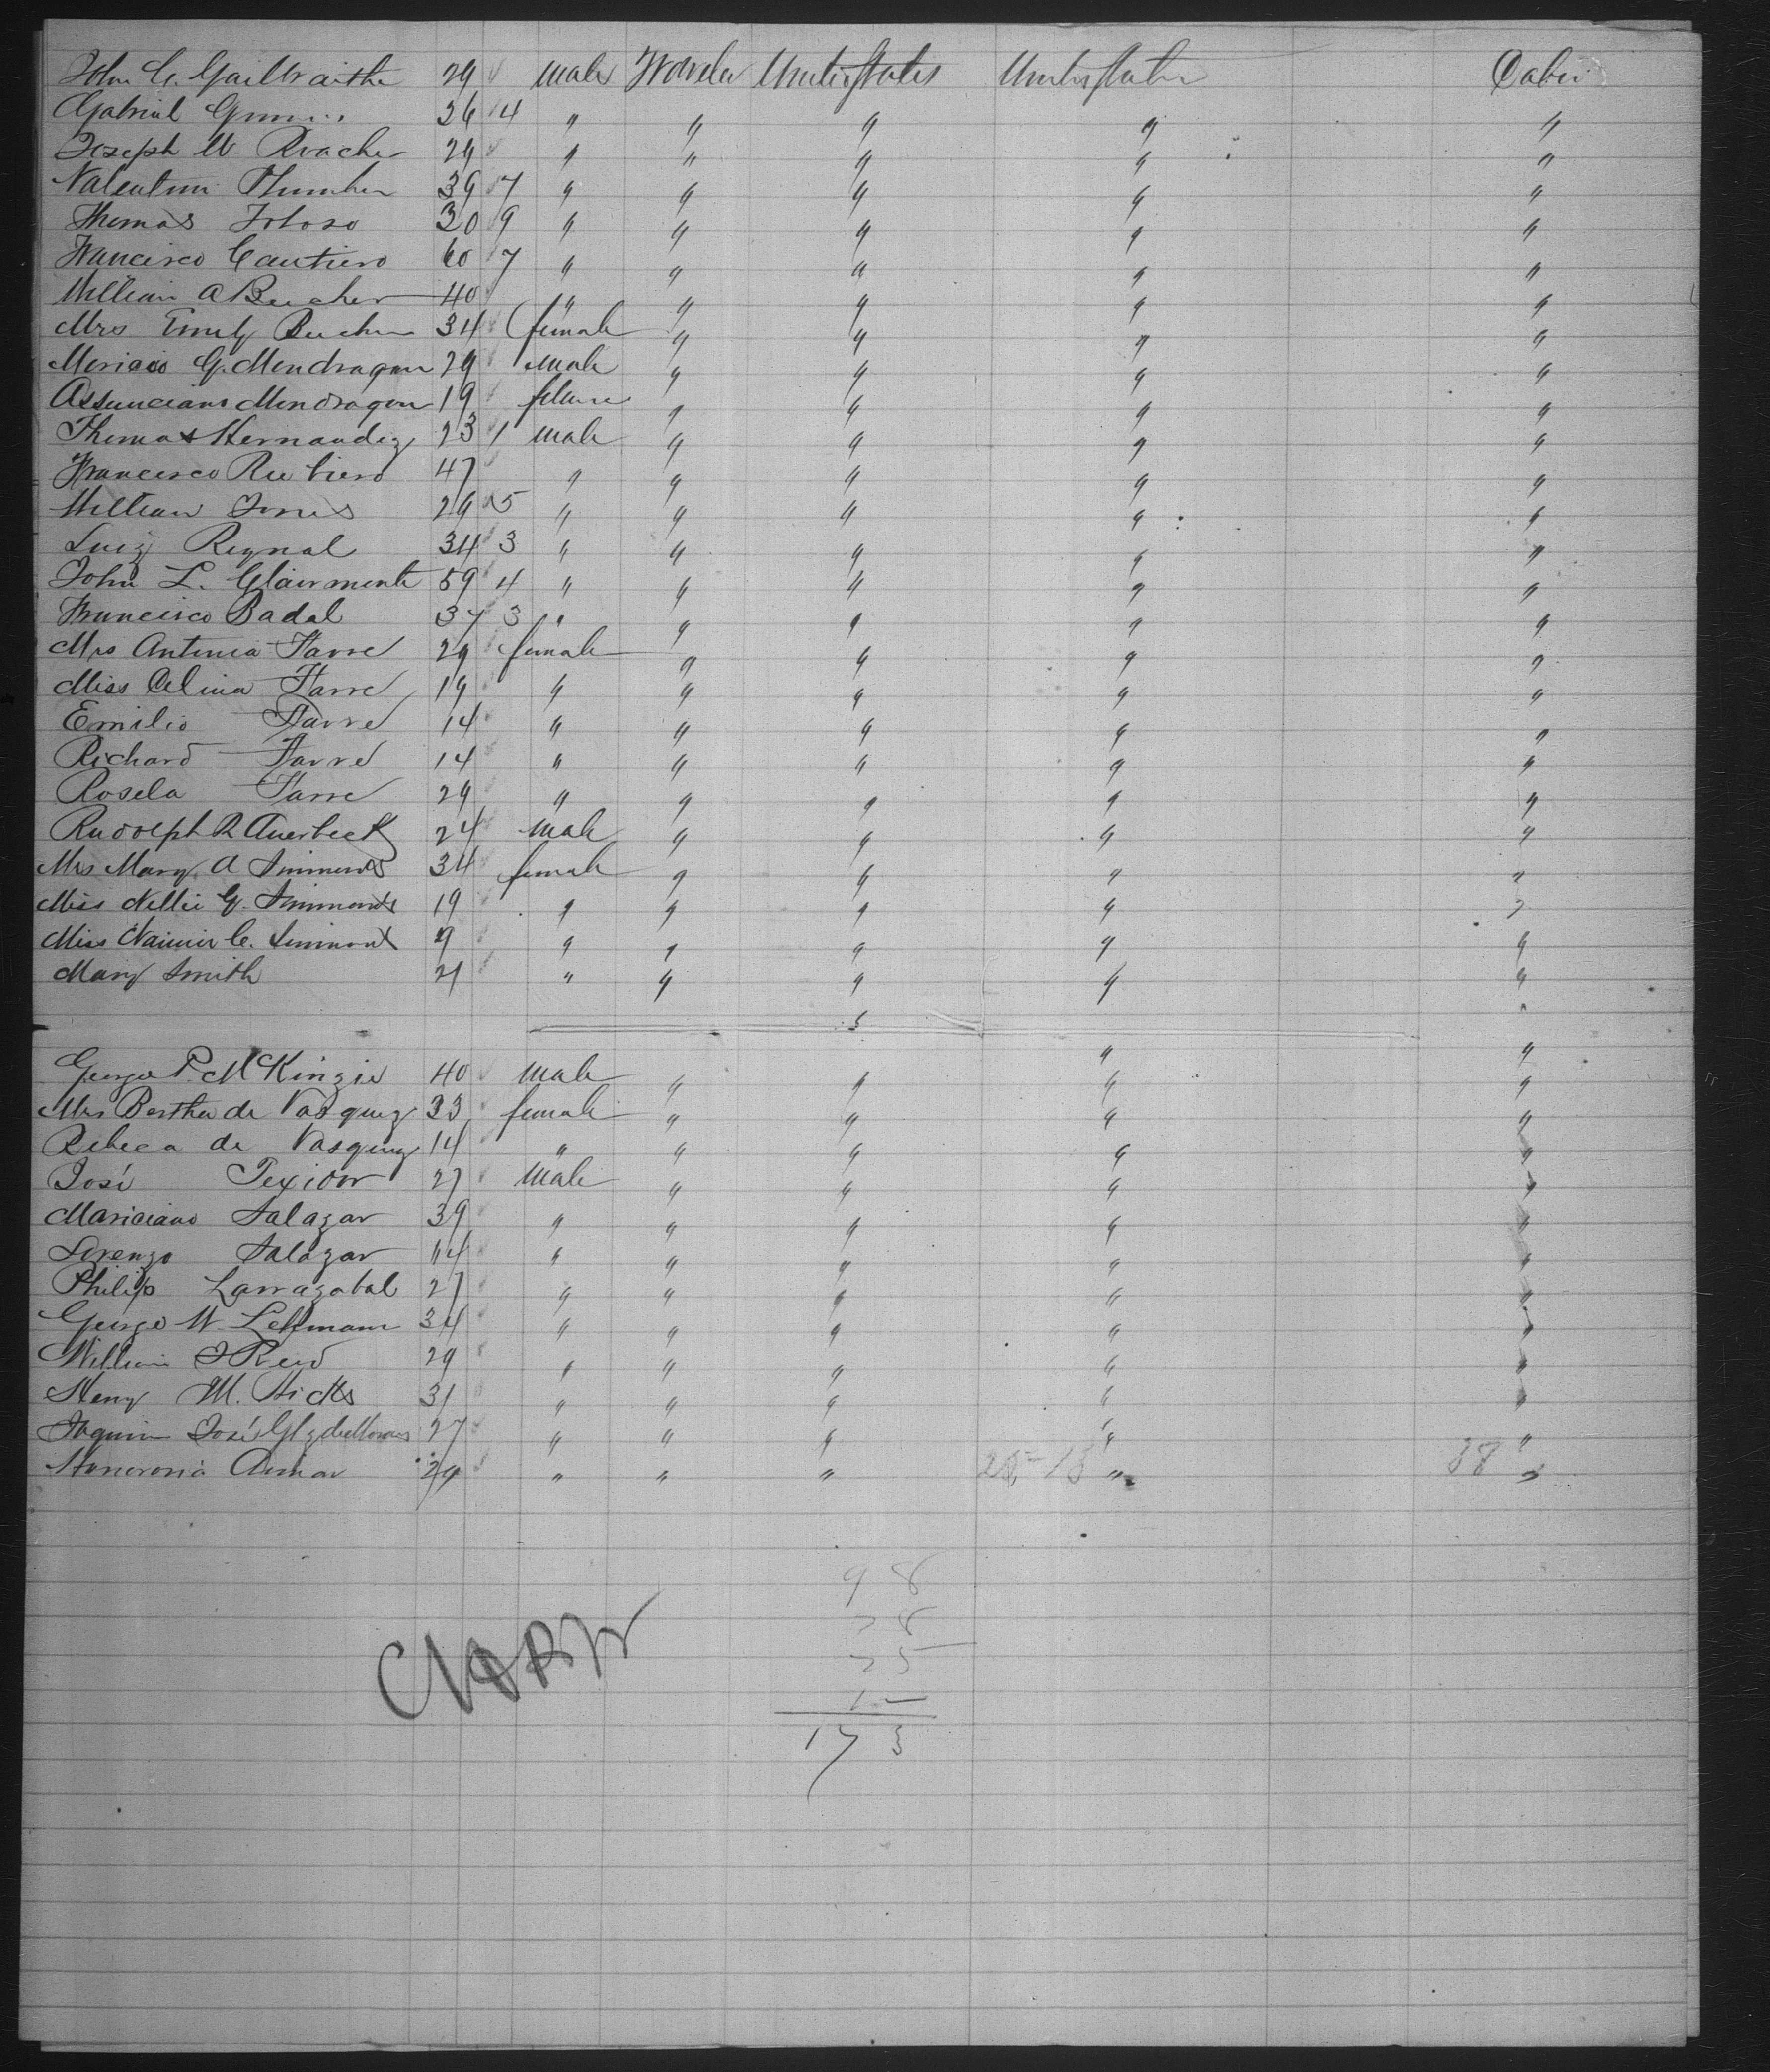 John C. Gailbraithe 29 male Traveler United States United States Cabin
Gabriel 26 4 " " " " "
Joseph W Roache 29 " " " " "
Valentin 39 7 " " " " "
Thomas Toloso 30 9 " " " " "
Francisco Cantiero 60 7 " " " " "
William A Beecher 40 " " " " "
Mrs Emily Beecher 34 female " " " "
G. Mendragon 29 male " " " "
Assunciano Mendragon 19 " " " "
Thomas Hernandiz 23 1 male " " " "
Francisco Rubiero 47 " " " " "
William Torres 29 5 " " " " "
Luiz Reynal 34 3 " " " " "
John L. Clairmonte 59 4 " " " " "
Francisco Badal 37 3 " " " " "
Mrs Antonia Farre 29 female " " " "
Miss Celina Farre 19 " " " " "
Emilio Farre 14 " " " " "
Richard Farre 14 " " " " "
Rosela Farre 29 " " " " "
Rudolph R Auerbeck 24 male " " " "
Mrs Mary A Simmonds 34 female " " " "
Miss Nellie G. Simmonds 19 " " " " "
Miss C. Simmont 9 " " " " "
Mary Smith 21 " " " " "
George P. McKinzie 40 male " " " "
Mrs Bertha de Vasquez 33 female " " " "
Rebeca de Vasquez 14 " " " " "
José Texidor 27 male " " " "
Mariciano Salazar 39 " " " " "
Lorenzo Salazar 14 " " " " "
Philip Larrazabal 27 " " " " "
George W. Lehmann 34 " " " " "
William J Reid 29 " " " " "
Henry M. Hicks 31 " " " " "
Joaquim José 27 " " " " "
29 " " " " 38 "
98
38
25
12
173